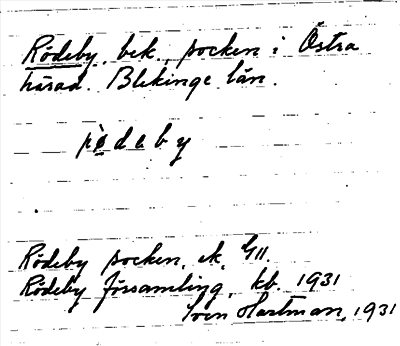 Rödeby, bek., socken i Östra
härad. Blekinge län.
Rödeby socken, ek. GII.
Rödeby församling, kb. 1931
Sven Hartman, 1931